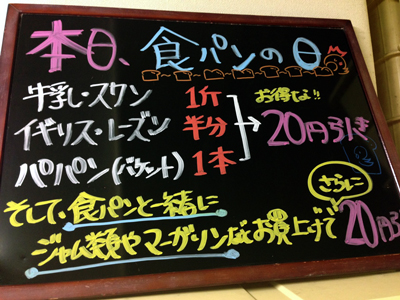 本日、食パンの日
牛乳・スワン 1斤
イギリス・レーズン 半分
パパン(バケット) 1本
お得な!!
20円引き
そして、食パンと一緒に
ジャム類やマーガリンなどお買上げで
さらに
20円引